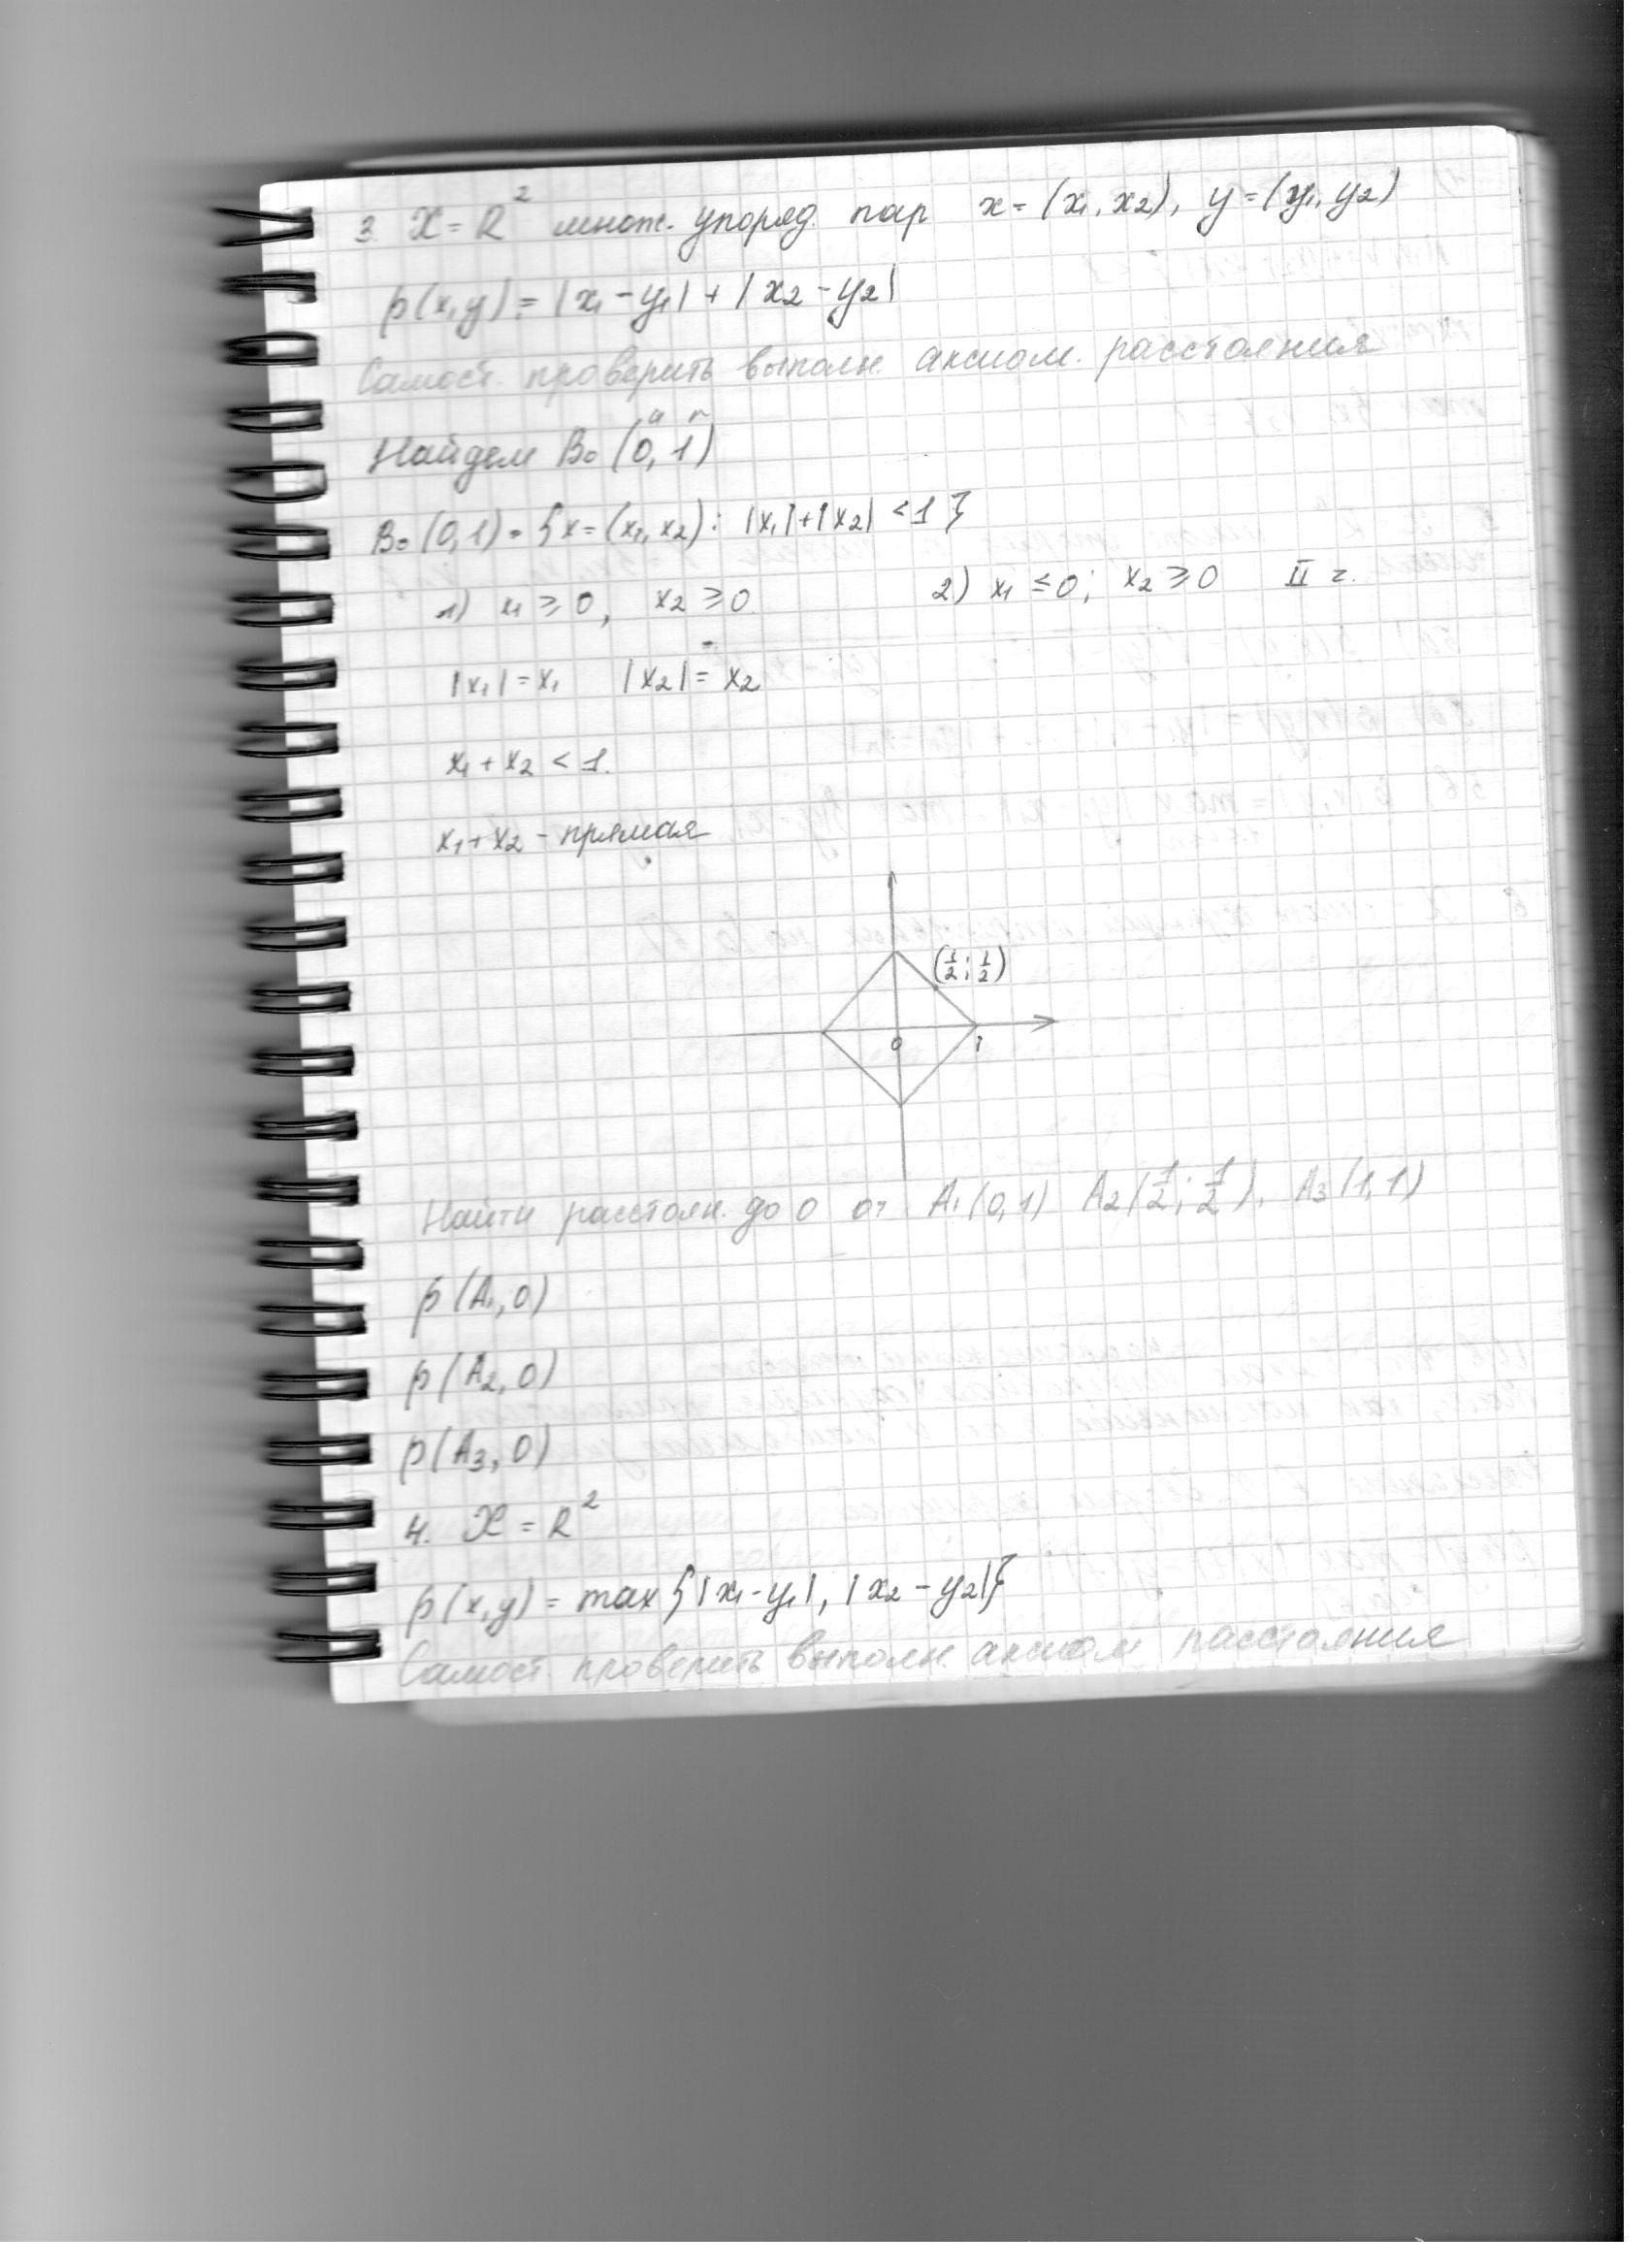 3. X = R² множ. упоряд. пар x = (x₁, x₂), y = (y₁, y₂)
ρ(x,y) = |x₁ - y₁| + |x₂ - y₂|
Самост. проверить выполн. аксиом. расстояния
a r
Найдем B₀ (0, 1)
B₀ (0, 1) = {x = (x₁, x₂) : |x₁| + |x₂| < 1}
1) x₁ ≥ 0, x₂ ≥ 0 2) x₁ ≤ 0; x₂ ≥ 0 II г.
|x₁| = x₁ |x₂| = x₂
x₁ + x₂ < 1.
x₁ + x₂ - прямая
(1/2; 1/2)
0 1
Найти расстоян. до 0 от A₁ (0, 1) A₂ (1/2; 1/2), A₃ (1, 1)
ρ (A₁, 0)
ρ (A₂, 0)
ρ (A₃, 0)
4. X = R²
ρ (x, y) = max {|x₁ - y₁|, |x₂ - y₂|}
Самост. проверить выполн. аксиом расстояния